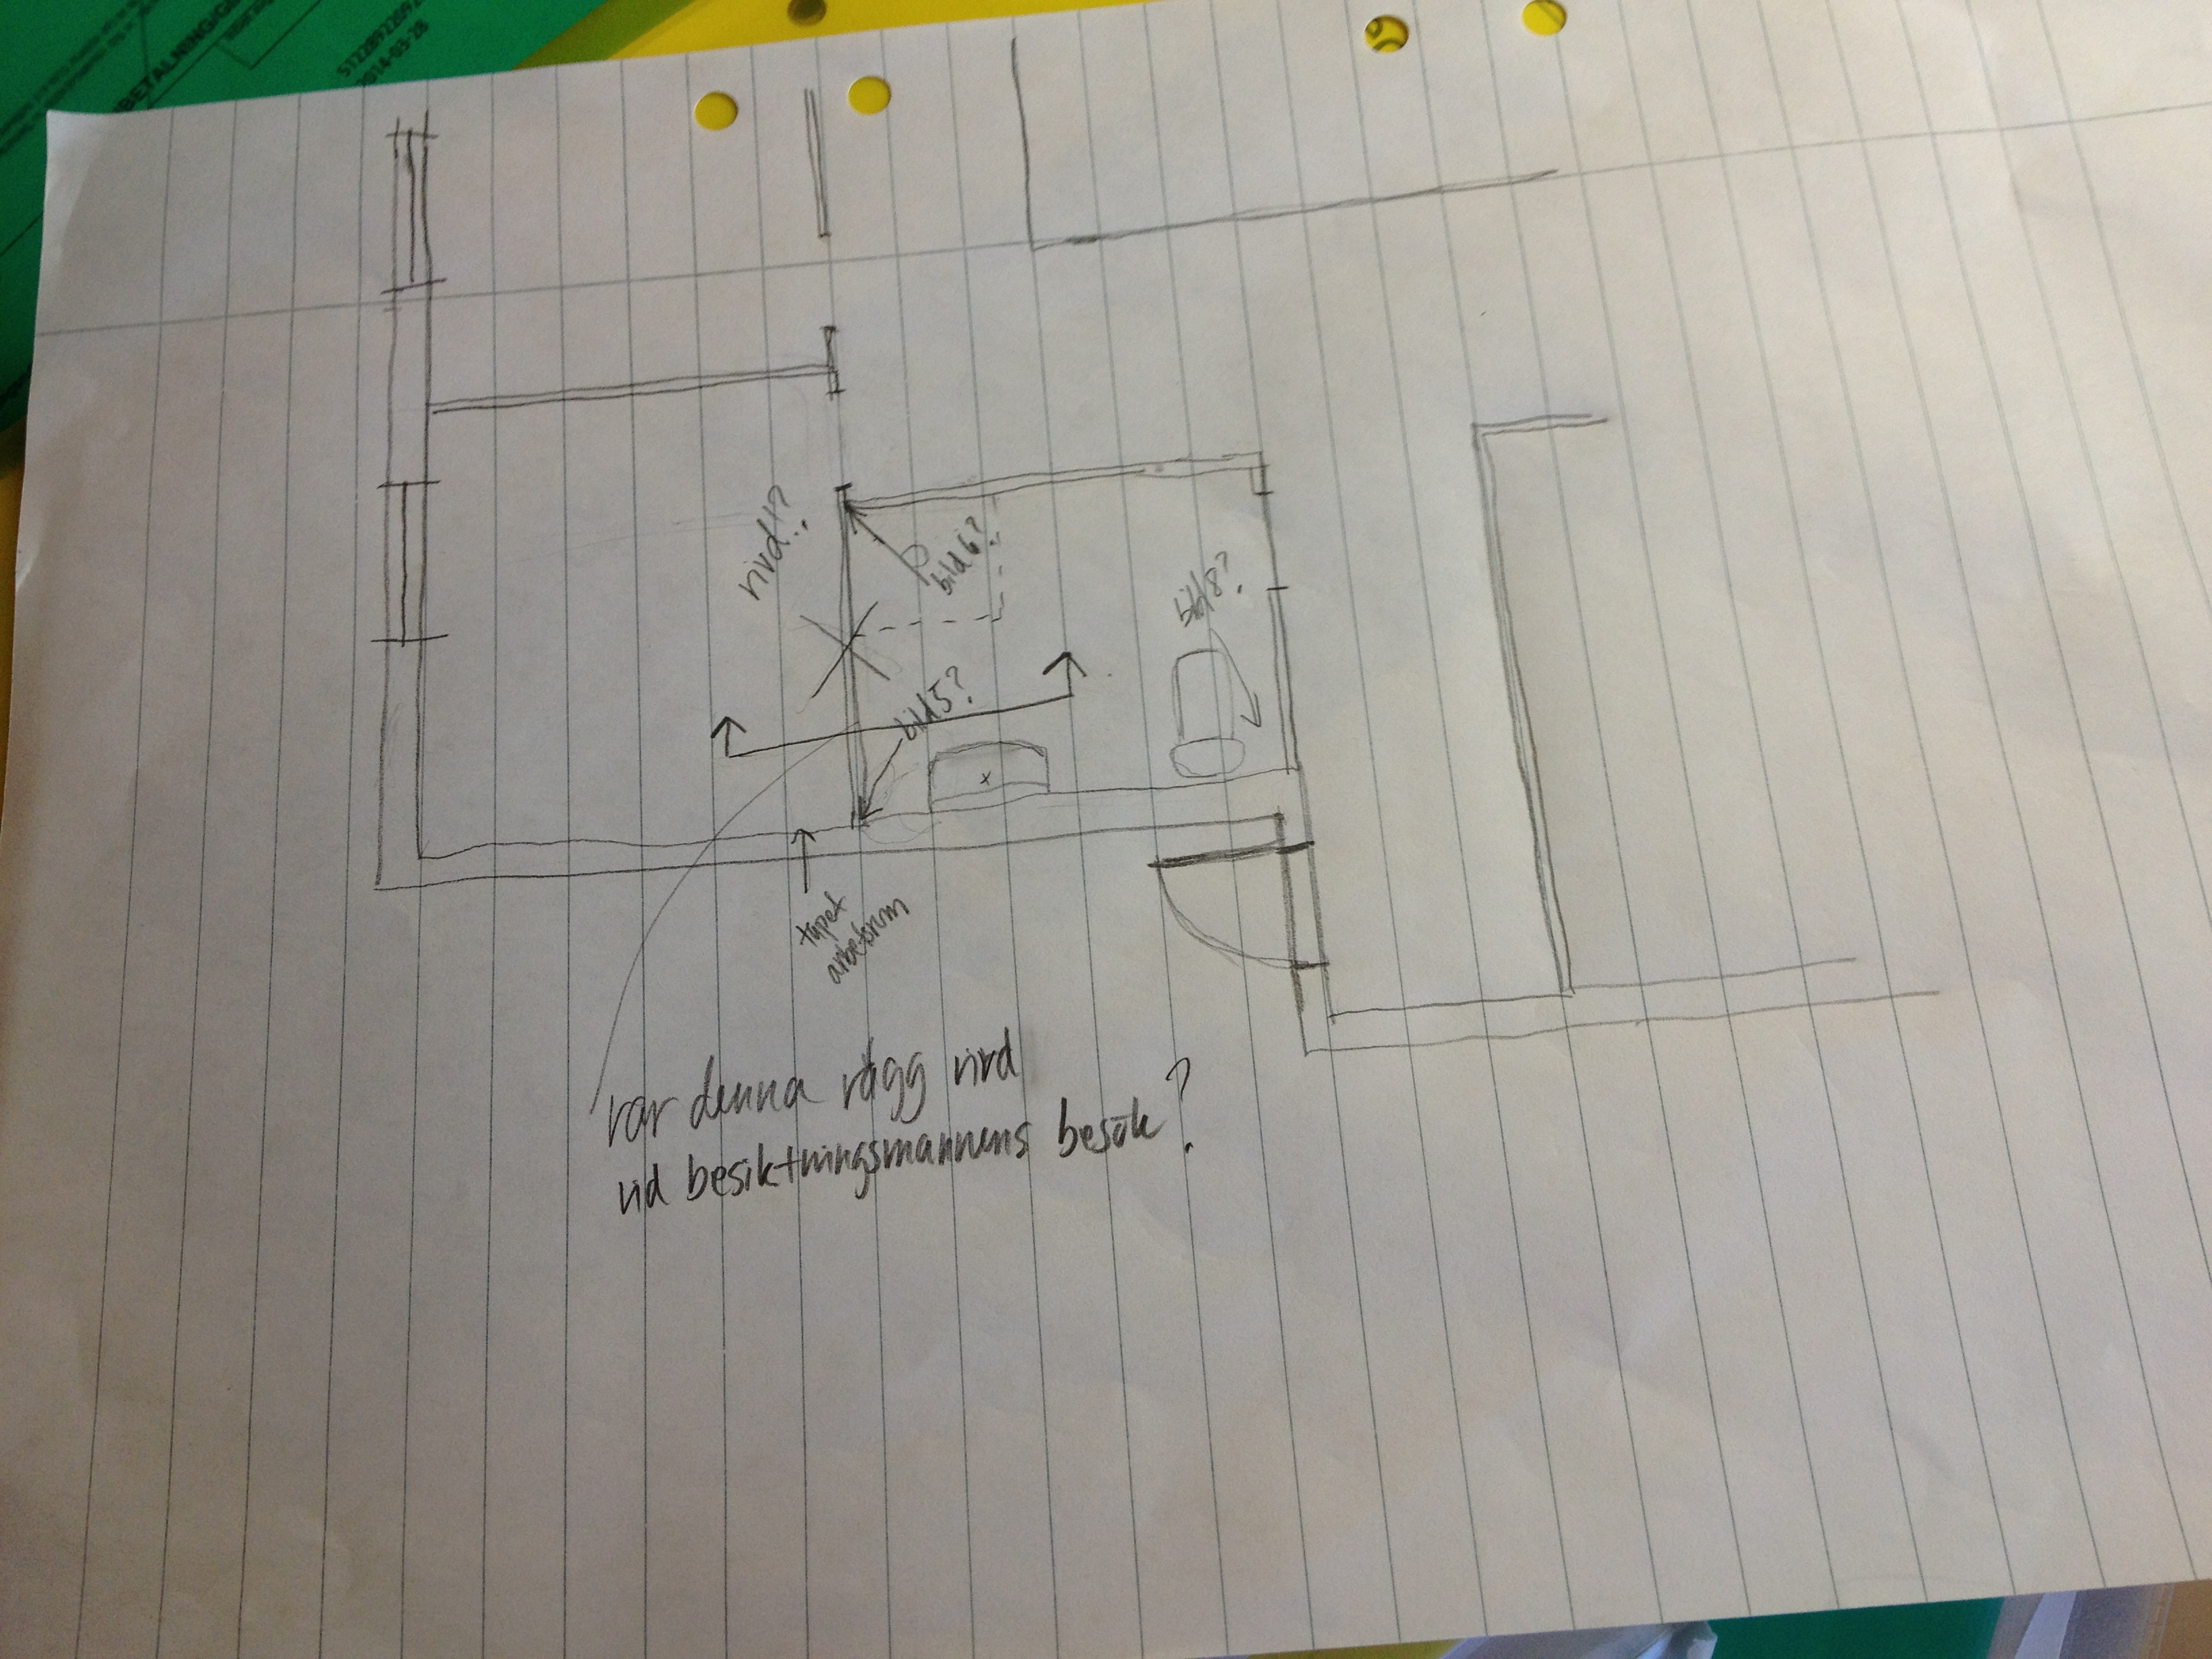 BETALNING/GI
2014-03-28
rivd!?
bild 6?
bild 8?
bild 5?
tapet
arbetsrum
var denna vägg rivd
vid besiktningsmannens besök?